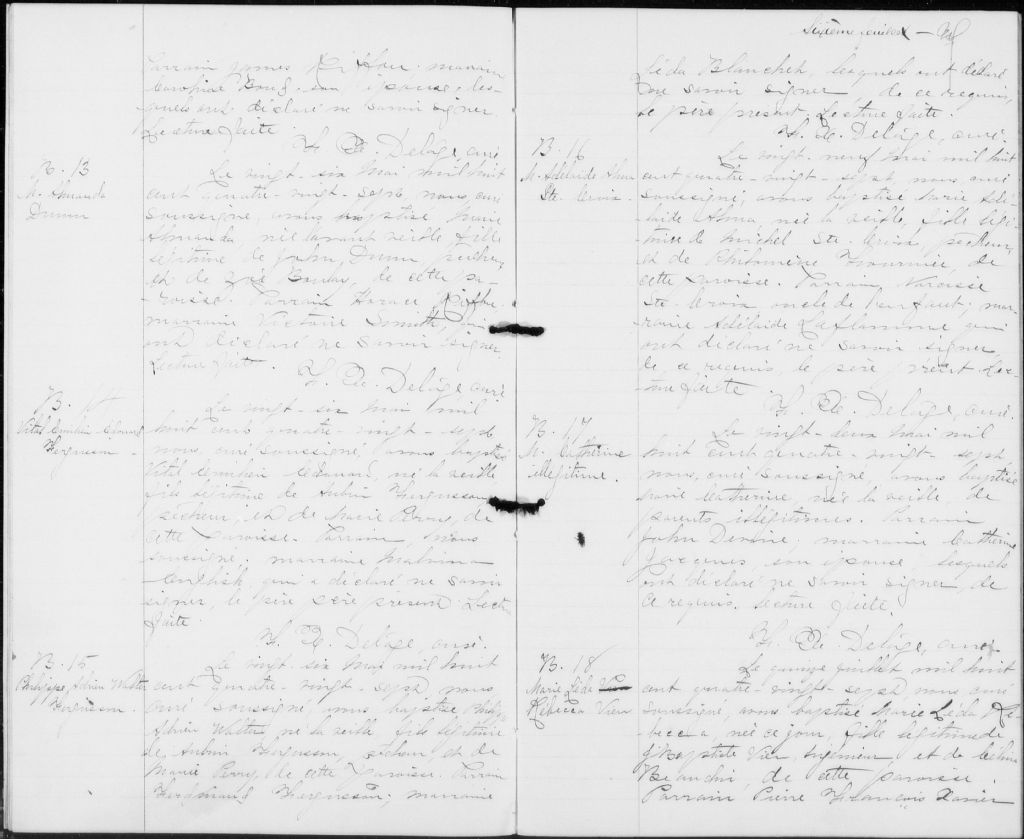 Parrain James ; marraine
Caroline , son épouse, les-
quels ont déclaré ne savoir signer.
Lecture faite.
Delâge, curé
B. 13
M. Amanda
Dunn
Le vingt-six Mai mil huit
cent quatre-vingt-sept nous, curé
soussigné, avons baptisé Marie
Amanda, née avant veille fille
légitime de John Dunn, pêcheur,
et de Zoé , de cette pa-
-roisse. Parrain Horace
marraine Victoire Smith, qui
ont déclaré ne savoir signer.
Lecture faite.
Delâge, curé
B. 14
Vital Edouard
Fergusson
Le vingt-six Mai mil
huit cent quatre-vingt-sept
nous, curé soussigné, avons baptisé
Vital Edouard, né la veille
fils légitime de Aubin Fergusson
pêcheur, et de Marie Perry, de
cette paroisse. Parrain, nous
soussigné, marraine Malvina
English, qui a déclaré ne savoir
signer, le père père présent. Lecture
faite.
Delâge, curé.
B. 15
Philippe, Adrien Walter
Fergusson.
Le vingt-six Mai mil huit
cent quatre-vingt-sept nous
curé soussigné, avons baptisé Philippe
Adrien Walter né la veille, fils légitime
de Aubin Fergusson, pêcheur, et de
Marie Perry, de cette paroisse. Parrain
Ferdinand Fergusson; marraine
Sixième feuillet
Léda Blanchet, lesquels ont déclaré
ne savoir signer de ce requis,
le père présent. Lecture faite.
Delâge, curé
B. 16
M. Adélaide Alma
Ste. Croix
Le vingt-neuf Mai mil huit
cent quatre-vingt-sept nous curé
soussigné, avons baptisé Marie Adé-
laide Alma, née la veille, fille légi-
time de Michel Ste. Croix, pêcheur,
et de Philomène Fournier, de
cette paroisse. Parrain, Narcisse
Ste. Croix oncle de l'enfant; mar-
raine Adélaide Laflamme qui
ont déclaré ne savoir signer,
de ce requis, le père présent Lec-
ture faite
Delâge, curé.
B. 17
M. Catherine
illégitime.
Le vingt-deux Mai mil
huit cent quatre-vingt-sept
nous, curé soussigné, avons baptisé
Marie Catherine, née la veille de
parents illégitimes. Parrain
John Devine; marraine Catherine
Jacques, son épouse; lesquels
ont déclaré ne savoir signer, de
ce requis. Lecture faite.
Delâge, curé
B. 18
Marie Léda
Rébecca Vien
Le quinze juillet mil huit
cent quatre-vingt-sept nous curé
soussigné, avons baptisé Marie Léda Ré-
becca, née ce jour, fille légitime de
J. Baptiste Vien, ingénieur et de
de cette paroisse.
Parrain Pierre François Xavier